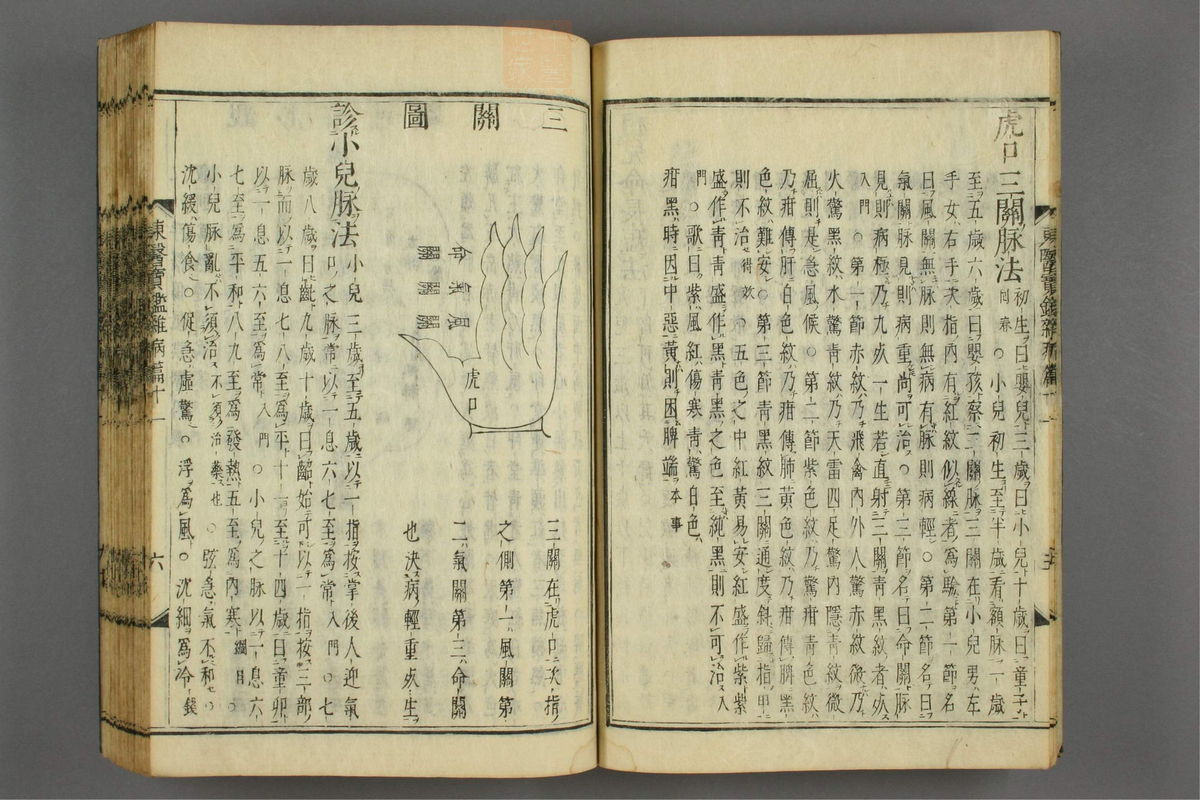 虎口三關脉法 初生曰嬰兒三歲曰小兒十歲曰童子
回春○小兒初生至半歲看額脉一歲
至五歲六歲曰嬰孩察三關脉三關在小兒男左
手女右手次指內有紅紋似線者爲驗第一節名
曰風關無脉則無病有脉則病輕○第二節名曰
氣關脉見則病重尚可治○第三節名曰命關脉
見則病極乃九死一生若直射三關青黑紋者死
入門○第一節赤紋乃飛禽內外人驚赤紋微乃
火驚黑紋水驚青紋乃天雷四足驚內隱青紋微
屈則是急風候○第二節紫色紋乃驚疳青色紋
乃疳傳肝白色紋乃疳傳肺黃色紋乃疳傳脾黑
色紋難安○第三節青黑紋三關通度斜歸指甲
則不治得効○五色之中紅黃易安紅盛作紫紫
盛作青青盛作黑青黑之色至純黑則不可治入
門○歌曰紫風紅傷寒青驚白色
疳黑時因中惡黃則困脾端本事
三關圖
風關
氣關
命關
虎口
三關在虎口次指
之側第一風關第
二氣關第三命關
也決病輕重死生
診小兒脉法 小兒三歲至五歲以一指按掌後人迎氣
口之脉常以一息六七至爲常入門○七
歲八歲曰齔九歲十歲曰齠始可以一指按三部
脉而以一息七八至爲平十一至十四歲曰童丱
以一息五六至爲常入門○小兒之脉以一息六
七至爲平和八九至爲發熱五至爲內寒綱目○
小兒脉亂不須治不須治藥也○弦急氣不和○
沈緩傷食○促急虛驚○浮爲風○沈細爲冷錢
東醫寶鑑雜病篇十一
六